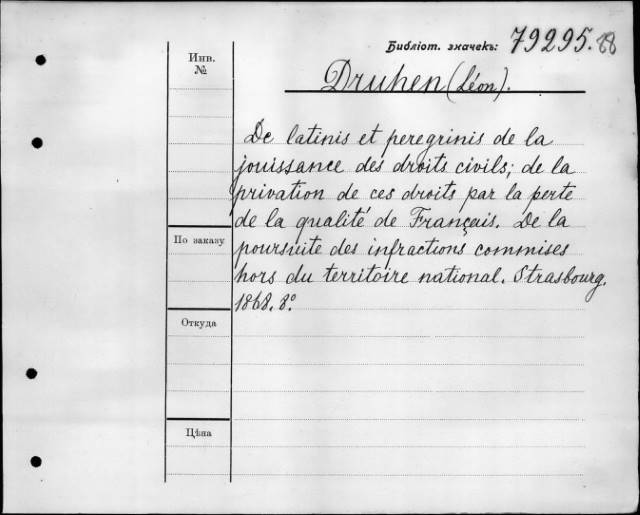 Библіот. значекъ: 79295.88
Инв. №
Druhen (Léon).
De latinis et peregrinis de la
jouissance des droits civils; de la
privation de ces droits par la perte
de la qualité de Français. De la
poursuite des infractions commises
hors du territoire national. Strasbourg.
1868. 8.º
По заказу
Откуда
Цѣна